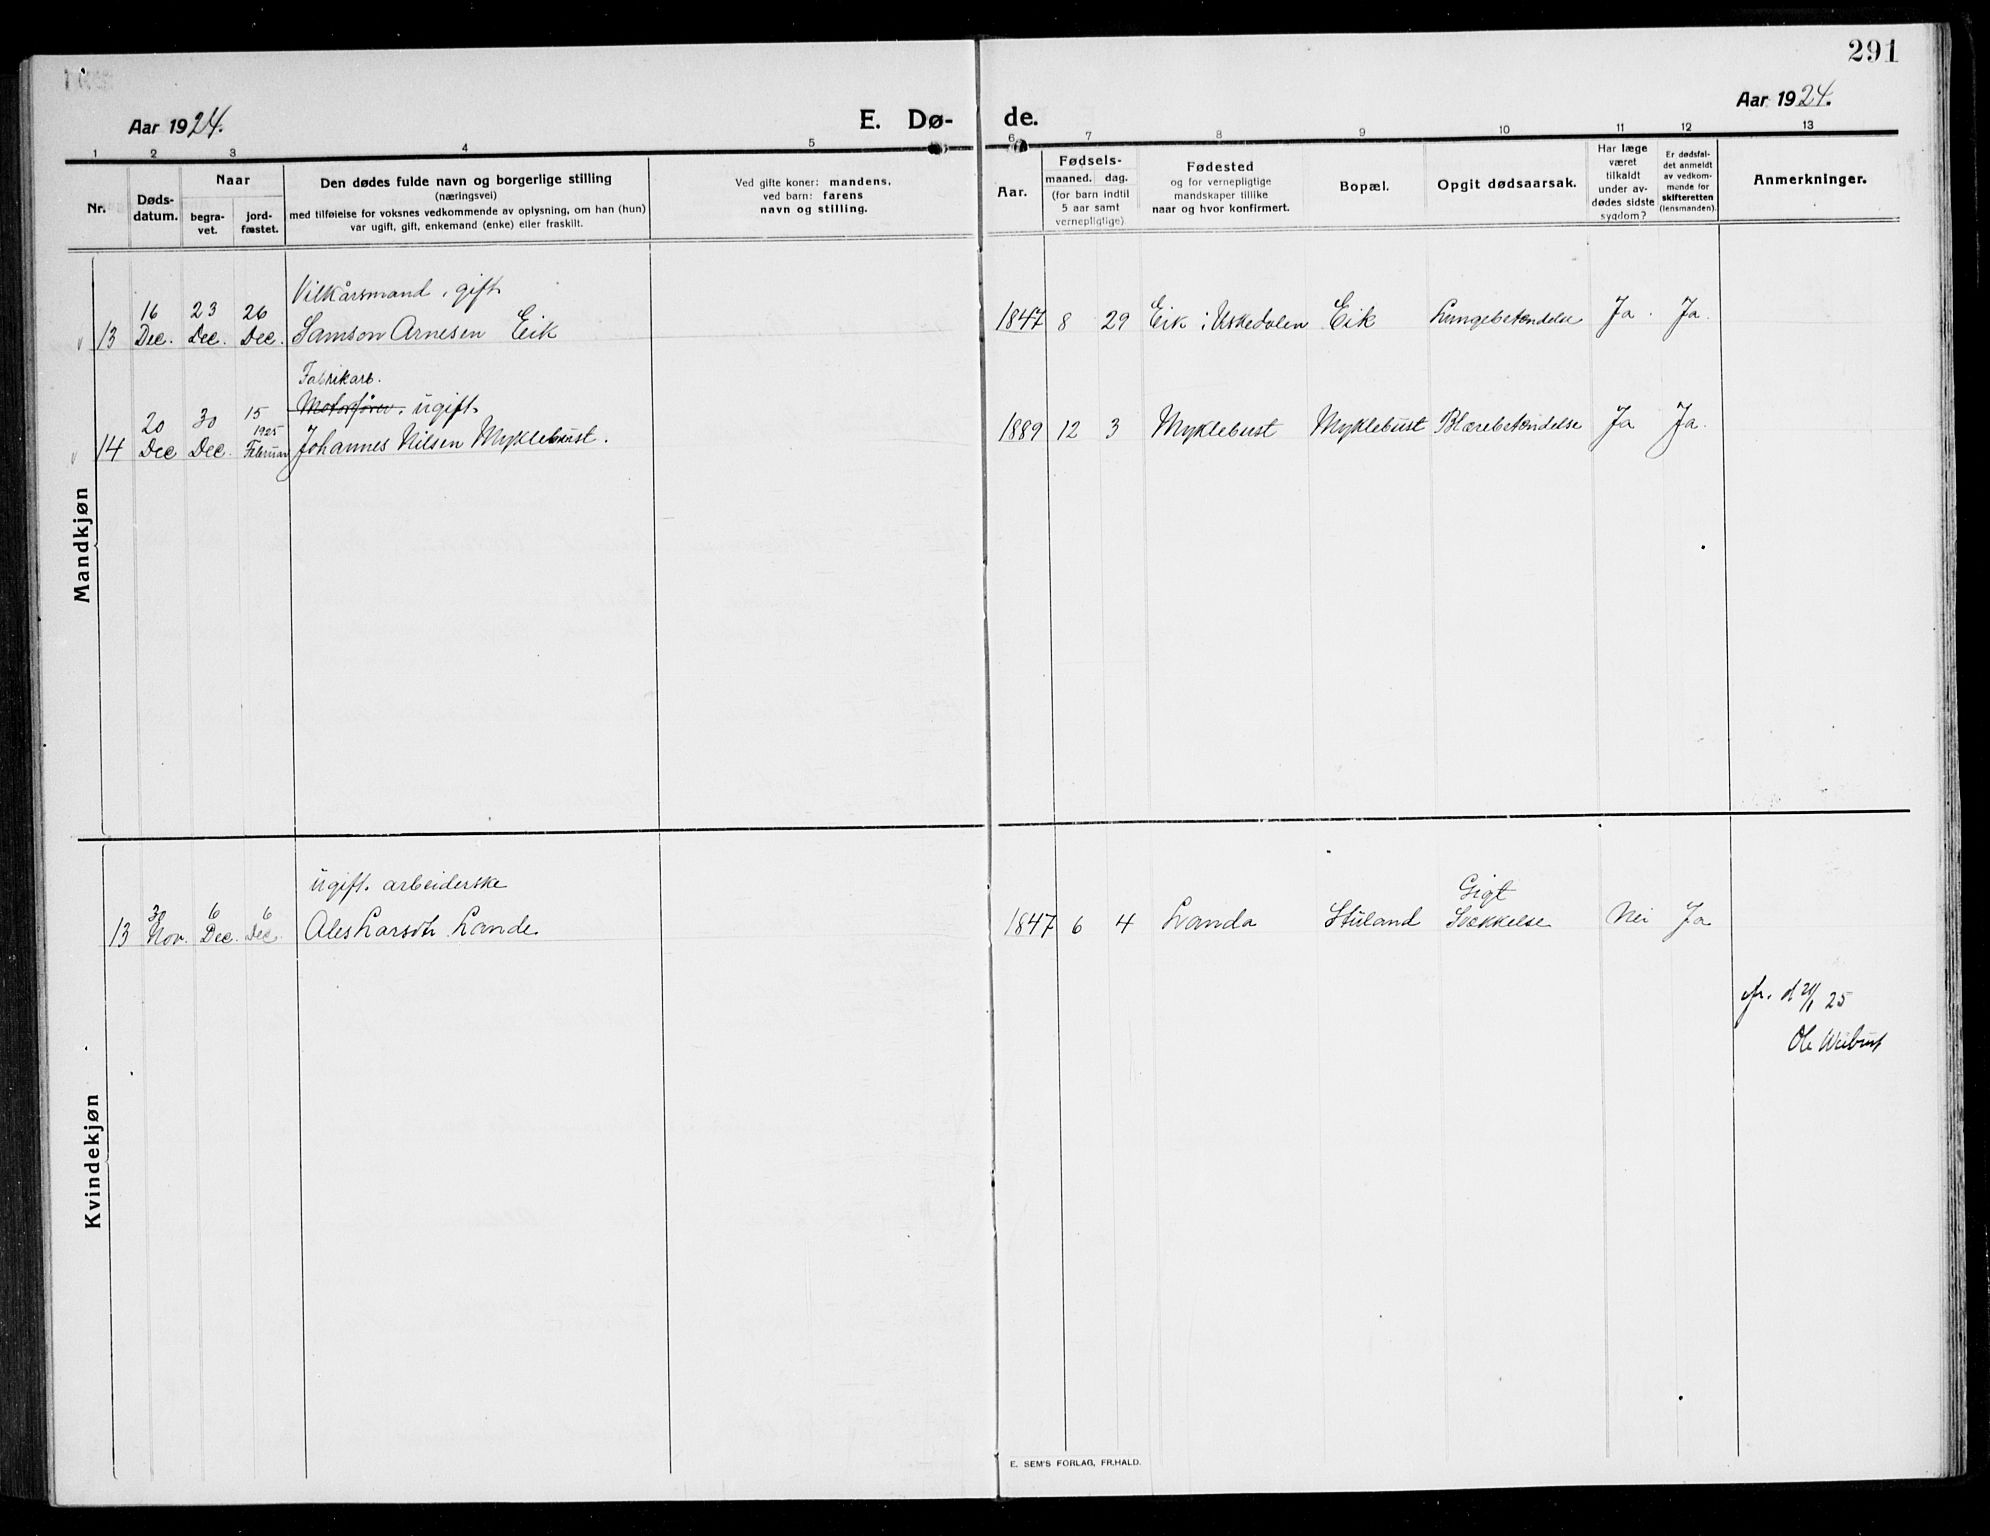 291
Aar 1924.
E. Dø-
de.
Aar 1924.
1 2 3 4 5 6 7 8 9 10 11 12 13
Nr.
Døds-
datum.
Naar
begra-
vet.
jord-
fæstet.
Den dødes fulde navn og borgerlige stilling
(næringsvei)
med tilføielse for voksnes vedkommende av oplysning, om han (hun)
var ugift, gift, enkemand (enke) eller fraskilt.
Ved gifte koner: mandens,
ved barn: farens
navn og stilling.
Aar.
Fødsels-
maaned. dag.
(for barn indtil
5 aar samt
vernepligtige).
Fødested
og for vernepligtige
mandskaper tillike
naar og hvor konfirmert.
Bopæl.
Opgit dødsaarsak.
Har læge
været
tilkaldt
under av-
dødes sidste
sygdom?
Er dødsfal-
det anmeldt
av vedkom-
mende for
skifteretten
(lensmanden).
Anmerkninger.
Mandkjøn
Vilkårsmand, gift
16 23 26
13 Dec. Dec. Dec. Samson Arnesen Eik 1847 8 29 Eik i Uskedalen Eik Lungebetændelse Ja. Ja.
Fabrikarb.
Motorfører, ugift.
20 30 15
1925
14 Dec Dec. Februar Johannes Nilsen Myklebust. 1889 12 3 Myklebust Myklebust Blærebetændelse Ja Ja.
Kvindekjøn
ugift. arbeiderske
Gigt
30 6 6
13 Nov. Dec. Dec. Ales Larsdtr. Lande 1847 6 4 Landa Stuland Svækkelse Nei Ja
d 21/1 25
Ole
E. SEM'S FORLAG, FR.HALD.